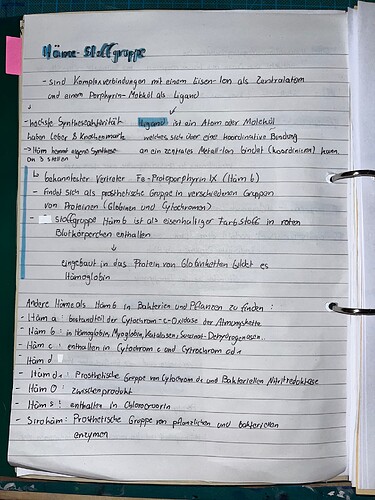 Häme-Stoffgruppe
- sind Komplexverbindungen mit einem Eisen-Ion als Zentralatom
und einem Porphyrin-Molekül als Ligand
- höchste Syntheseaktivität
haben Leber & Knochenmark
→ Häm hemmt eigene Synthese
an 3 Stellen
Ligand ist ein Atom oder Molekül
welches sich über eine koordinative Bindung
an ein zentrales Metall-Ion bindet (koordinieren) kann
↳ bekanntester Vertreter Fe-Protoporphyrin IX (Häm b)
- findet sich als prosthetische Gruppe in verschiedenen Gruppen
von Proteinen (Globinen und Cytochromen)
- Stoffgruppe Häm b ist als eisenhaltiger Farbstoff in roten
Blutkörperchen enthalten
↓
eingebaut in das Protein von Globinketten bildet es
Hämoglobin
Andere Häme als Häm b in Bakterien und Pflanzen zu finden:
- Häm a: bestandteil der Cytochrom-c-Oxidase der Atmungskette
- Häm b: in Hämoglobin, Myoglobin, Katalasen, Succinat-Dehydrogenasen..
- Häm c: enthalten in Cytochrom c und Cytochrom cd1
- Häm d
- Häm d1: Prosthetische Gruppe von Cytochrom d1 und Bakteriellen Nitritreduktase
- Häm O: Zwischenprodukt
- Häm s: enthalten in Chlorocruorin
- Sirohäm: Prosthetische Gruppe von pflanzlichen und bakteriellen
enzymen